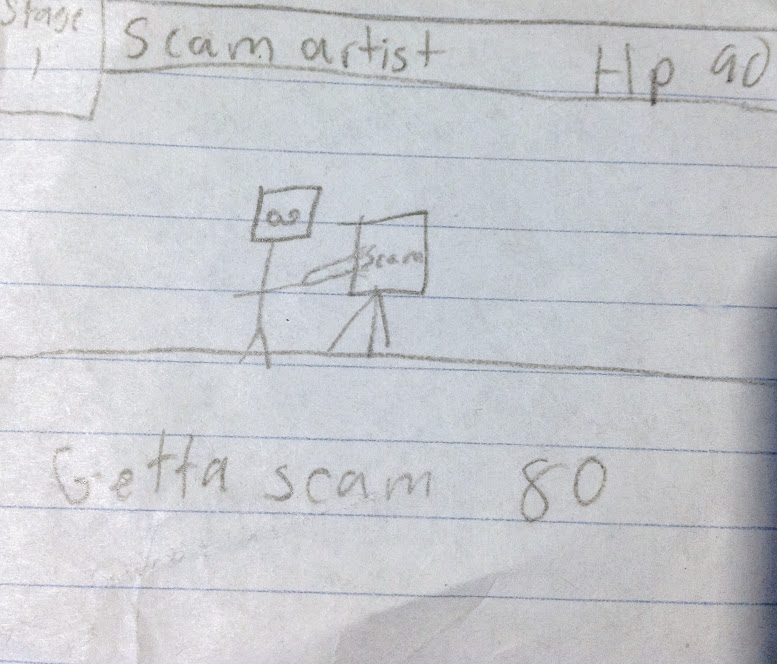 Stage
1
Scam artist
Hp 90
Scam
Getta scam 80